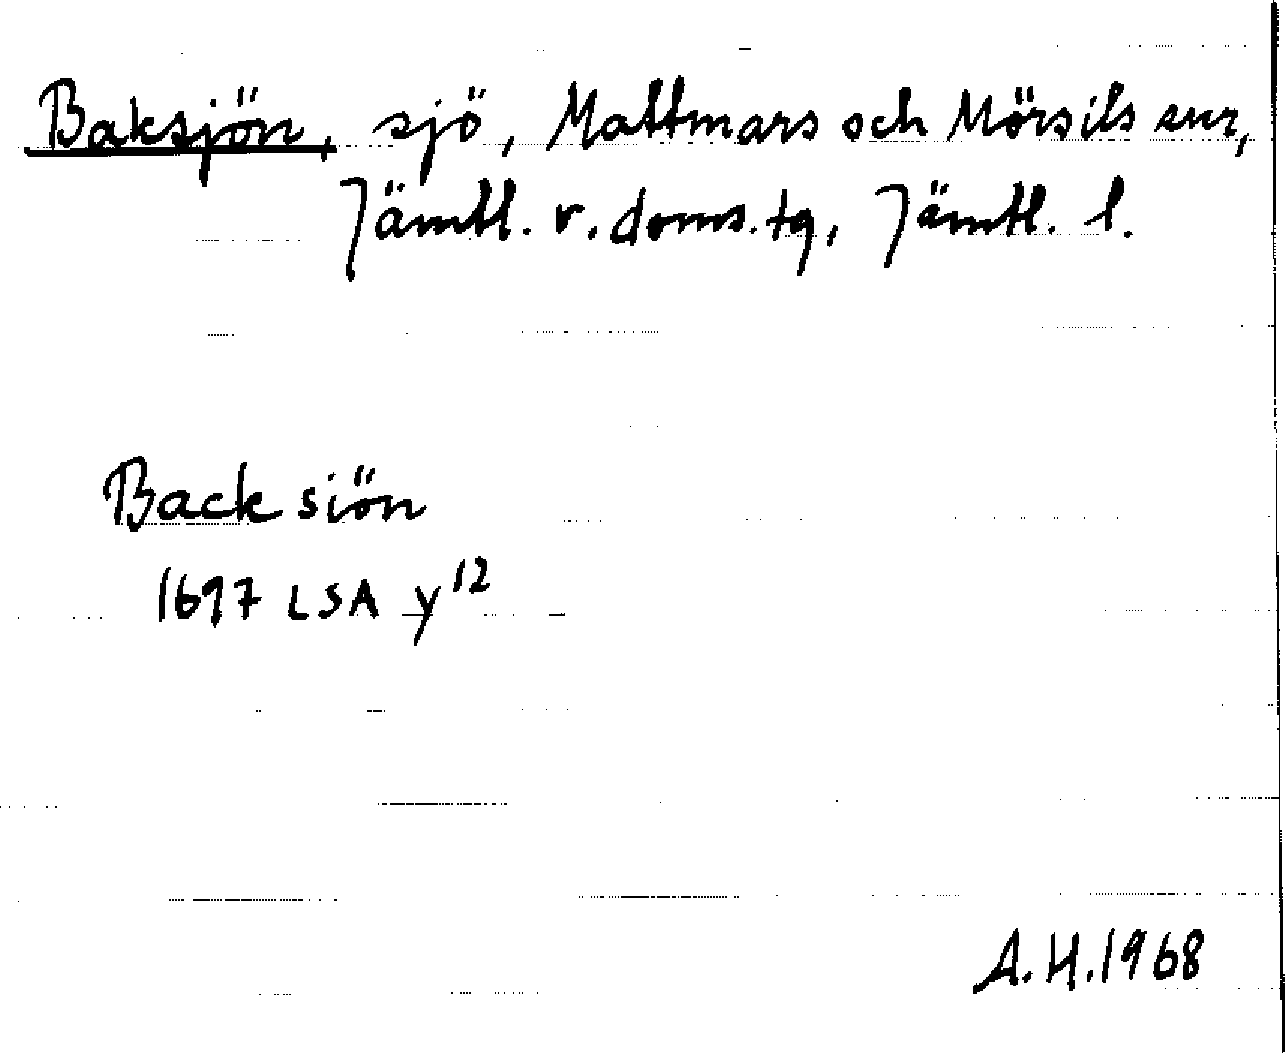 Baksjön, sjö, Mattmars och Mörsils snr,
Jämtl. v. doms. tg, Jämtl. l.
Back siön
1697 LSA y12
A.H.1968